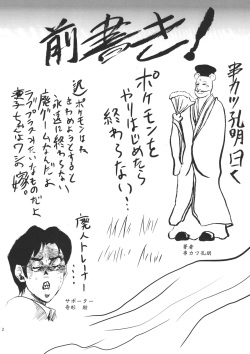 前書き!
串カツ孔明曰く
ポケモンを
やりはじめたら
終わらない…
近
ポケモンはね
きわめようとすると
永遠に終わらない
魔ゲームなんだよ
ラブプラスみたいなものだよ
凛子ちゃんはワシの嫁。
廃人トレーナー
……
著者
串カツ孔明
サポーター